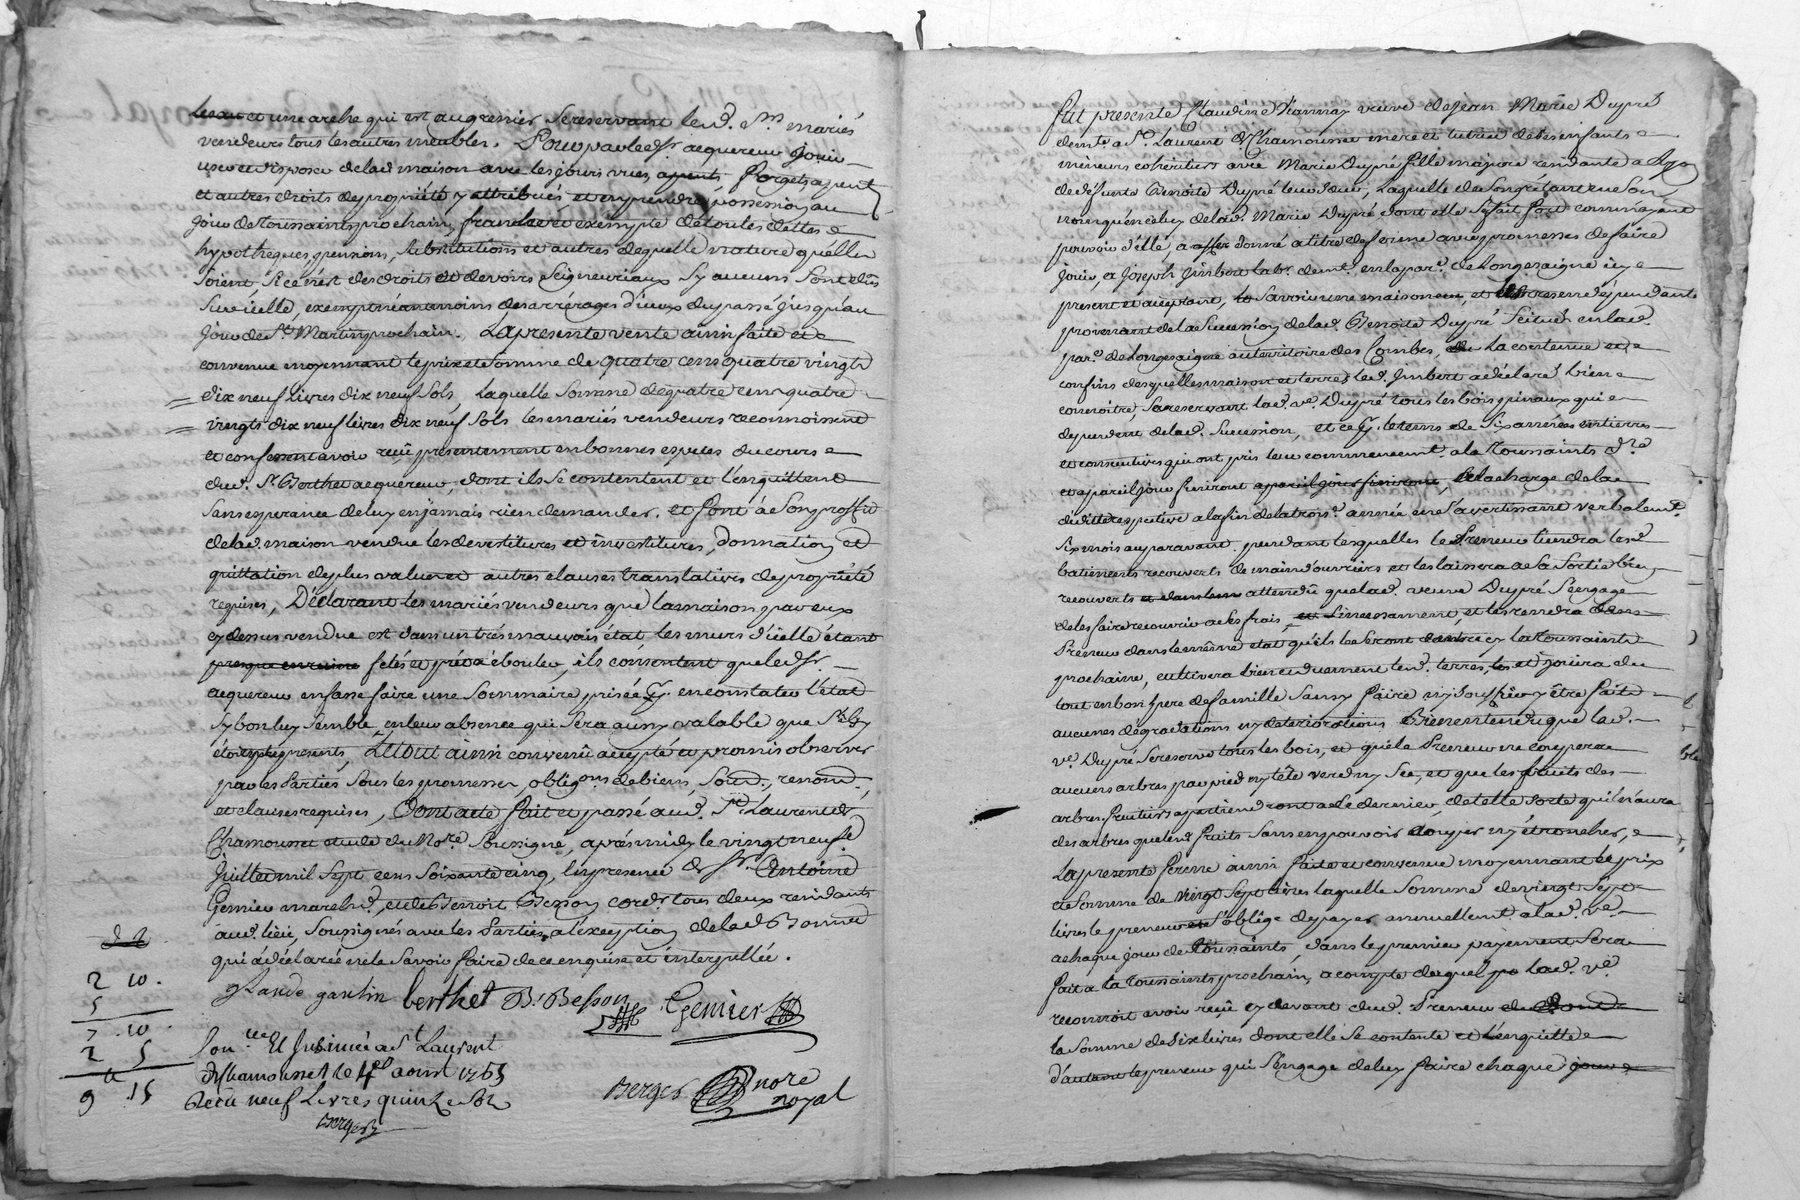 et une arche qui est au grenier se reservant led. srs mariés
vendeurs tous les autres meubles. Pour par led. sr acquereur jouir
user et disposer de lad. maison avec les jours vues, agents
et autres droits de propriété y attribués et en prendre possession au
jour de toussaints prochain, franche et exempte de toutes dettes
hypotheques, pensions, substitutions et autres de quelle nature quelles
soient, si ce n'est des droits et devoirs seigneuriaux sy aucuns sont dus
sur icelle, exempte neanmoins des arrérages d'iceux du passé jusqu'au
jour de St Martin prochain. La presente vente ainsi faite et
convenue moyennant le prix et somme de quatre cens quatre vingts
dix neuf livres dix neuf sols, laquelle somme de quatre cens quatre
vingts dix neuf livres dix neuf sols les mariés vendeurs reconnoissent
et confessent avoir reçu presentement en bonnes especes du cours
dud. sr Berthet acquereur, dont ils se contentent et l'en quittent
sans esperance de luy en jamais rien demander. et font à son proffit
de lad. maison vendue les devestitures et investitures, donnation et
quittation de plus value et autres clauses translatives de propriété
requises, Déclarant les mariés vendeurs que la maison par eux
cy dessus vendue est dans un très mauvois état les murs d'icelle étant
presque en ruine felés et prets à ébouler, ils consentent que led. sr
acquereur en fasse faire une sommaire prisée pr. en constater l'état
sy bon luy semble, en leur absence qui sera aussy valable que s'ils y
étoient presents, Le tout ainsi convenû accepté et promis observer
par les parties sous les promesses, obligons. de biens, soum., renon.
et clauses requises, Dont acte fait et passé aud. St Laurent de
Chamousset etude du Nore. soussigné, après midy le vingt neuf
juillet mil sept cens soixante cinq, en presence de sr. Antoine
Genier marchd., et de Benoit Besson cordr tous deux residants
aud. lieu soussignés avec les parties, a l'exception de lad. Bonne
qui a déclaré ne le savoir faire de ce enquise et interpellée.
Claude garlin berthet B. Besson Genier
2 10.
5
7 .10
2 5
9 .15
Con. lle Et Insinué a St Laurent
de Chamousset le 4e aoust 1765
Reçu neuf Livres quinze sols
Berger
Berger nore
royal
Fut presente Claudine Viannay veuve de Jean Marie Dupré
demte a St. Laurent de Chamousset mere et tutrice de ses enfants
mineurs coheritiers avec Marie Dupré fille majeure residante a Lyon
de défunte Benoite Dupré leur soeur, Laquelle de son gré tant en son
nom qu'en celuy de lad. Marie Dupré dont elle se fait fort comme ayant
pouvoir d'elle, a donné a titre de ferme avec promesses de faire
jouir, a Joseph Jmbert labr. demt. en la par. de Longesaigne icy
present et acceptant, Savoir une maison et terres en dependante
provenant de la succession de lad. Benoite Dupré située en lad.
par. de Longesaigne au territoire des Combes, de la contenue et
confins desquelles maison et terres led. Jmbert a déclaré bien
connoitre, se reservant lad. ve. Dupré tous les bois pinaux qui
dependent de lad. succession, et ce pr. le tems de six années entieres
et consecutives qui ont pris leur commencemt. a la Toussaints dre.
et a pareil jour finiront, a la charge de la
deditte respective a la fin de la trois. année en s'avertissant verbalemt.
six mois auparavant pendant lesquelles le Preneur tiendra lesd.
batiments recouverts de main d'ouvriers et les laissera a sa sortie bien
recouverts attendû que lad. veuve Dupré s'engage
de les faire recouvrir a ses frais, et les rendra led.
Preneur dans le même état qu'ils se seront a la Toussaints
prochaine, cultivera bien et duement lesd. terres, et jouira du
tout en bon pere de famille sans y faire ny souffrir y être faite
aucunes dégradations ny deteriorations Bien entendu que lad.
ve. Dupré se reserve tous les bois, et que le Preneur ne coupera
aucuns arbres par pied ny tête verd ny sec, et que les fruits des
arbres fruitiers apartiendront a ce dernier, de telle sorte qu'il n'aura
des arbres que lesd. fruits sans en pouvoir couper ny étroncher,
La presente ferme ainsi faite et convenue moyennant le prix
et somme de vingt sept livres laquelle somme de vingt sept
livres le preneur s'oblige de payer annuellemt. a lad. ve.
a chaque jour de Toussaints, dont le premier payement sera
fait a la Toussaints prochain, a compte duquel lad. ve.
reconnoit avoir reçu cy devant dud. Preneur
la somme de six livres dont elle se contente et l'en quitte
d'autant le preneur qui s'engage de luy faire chaque